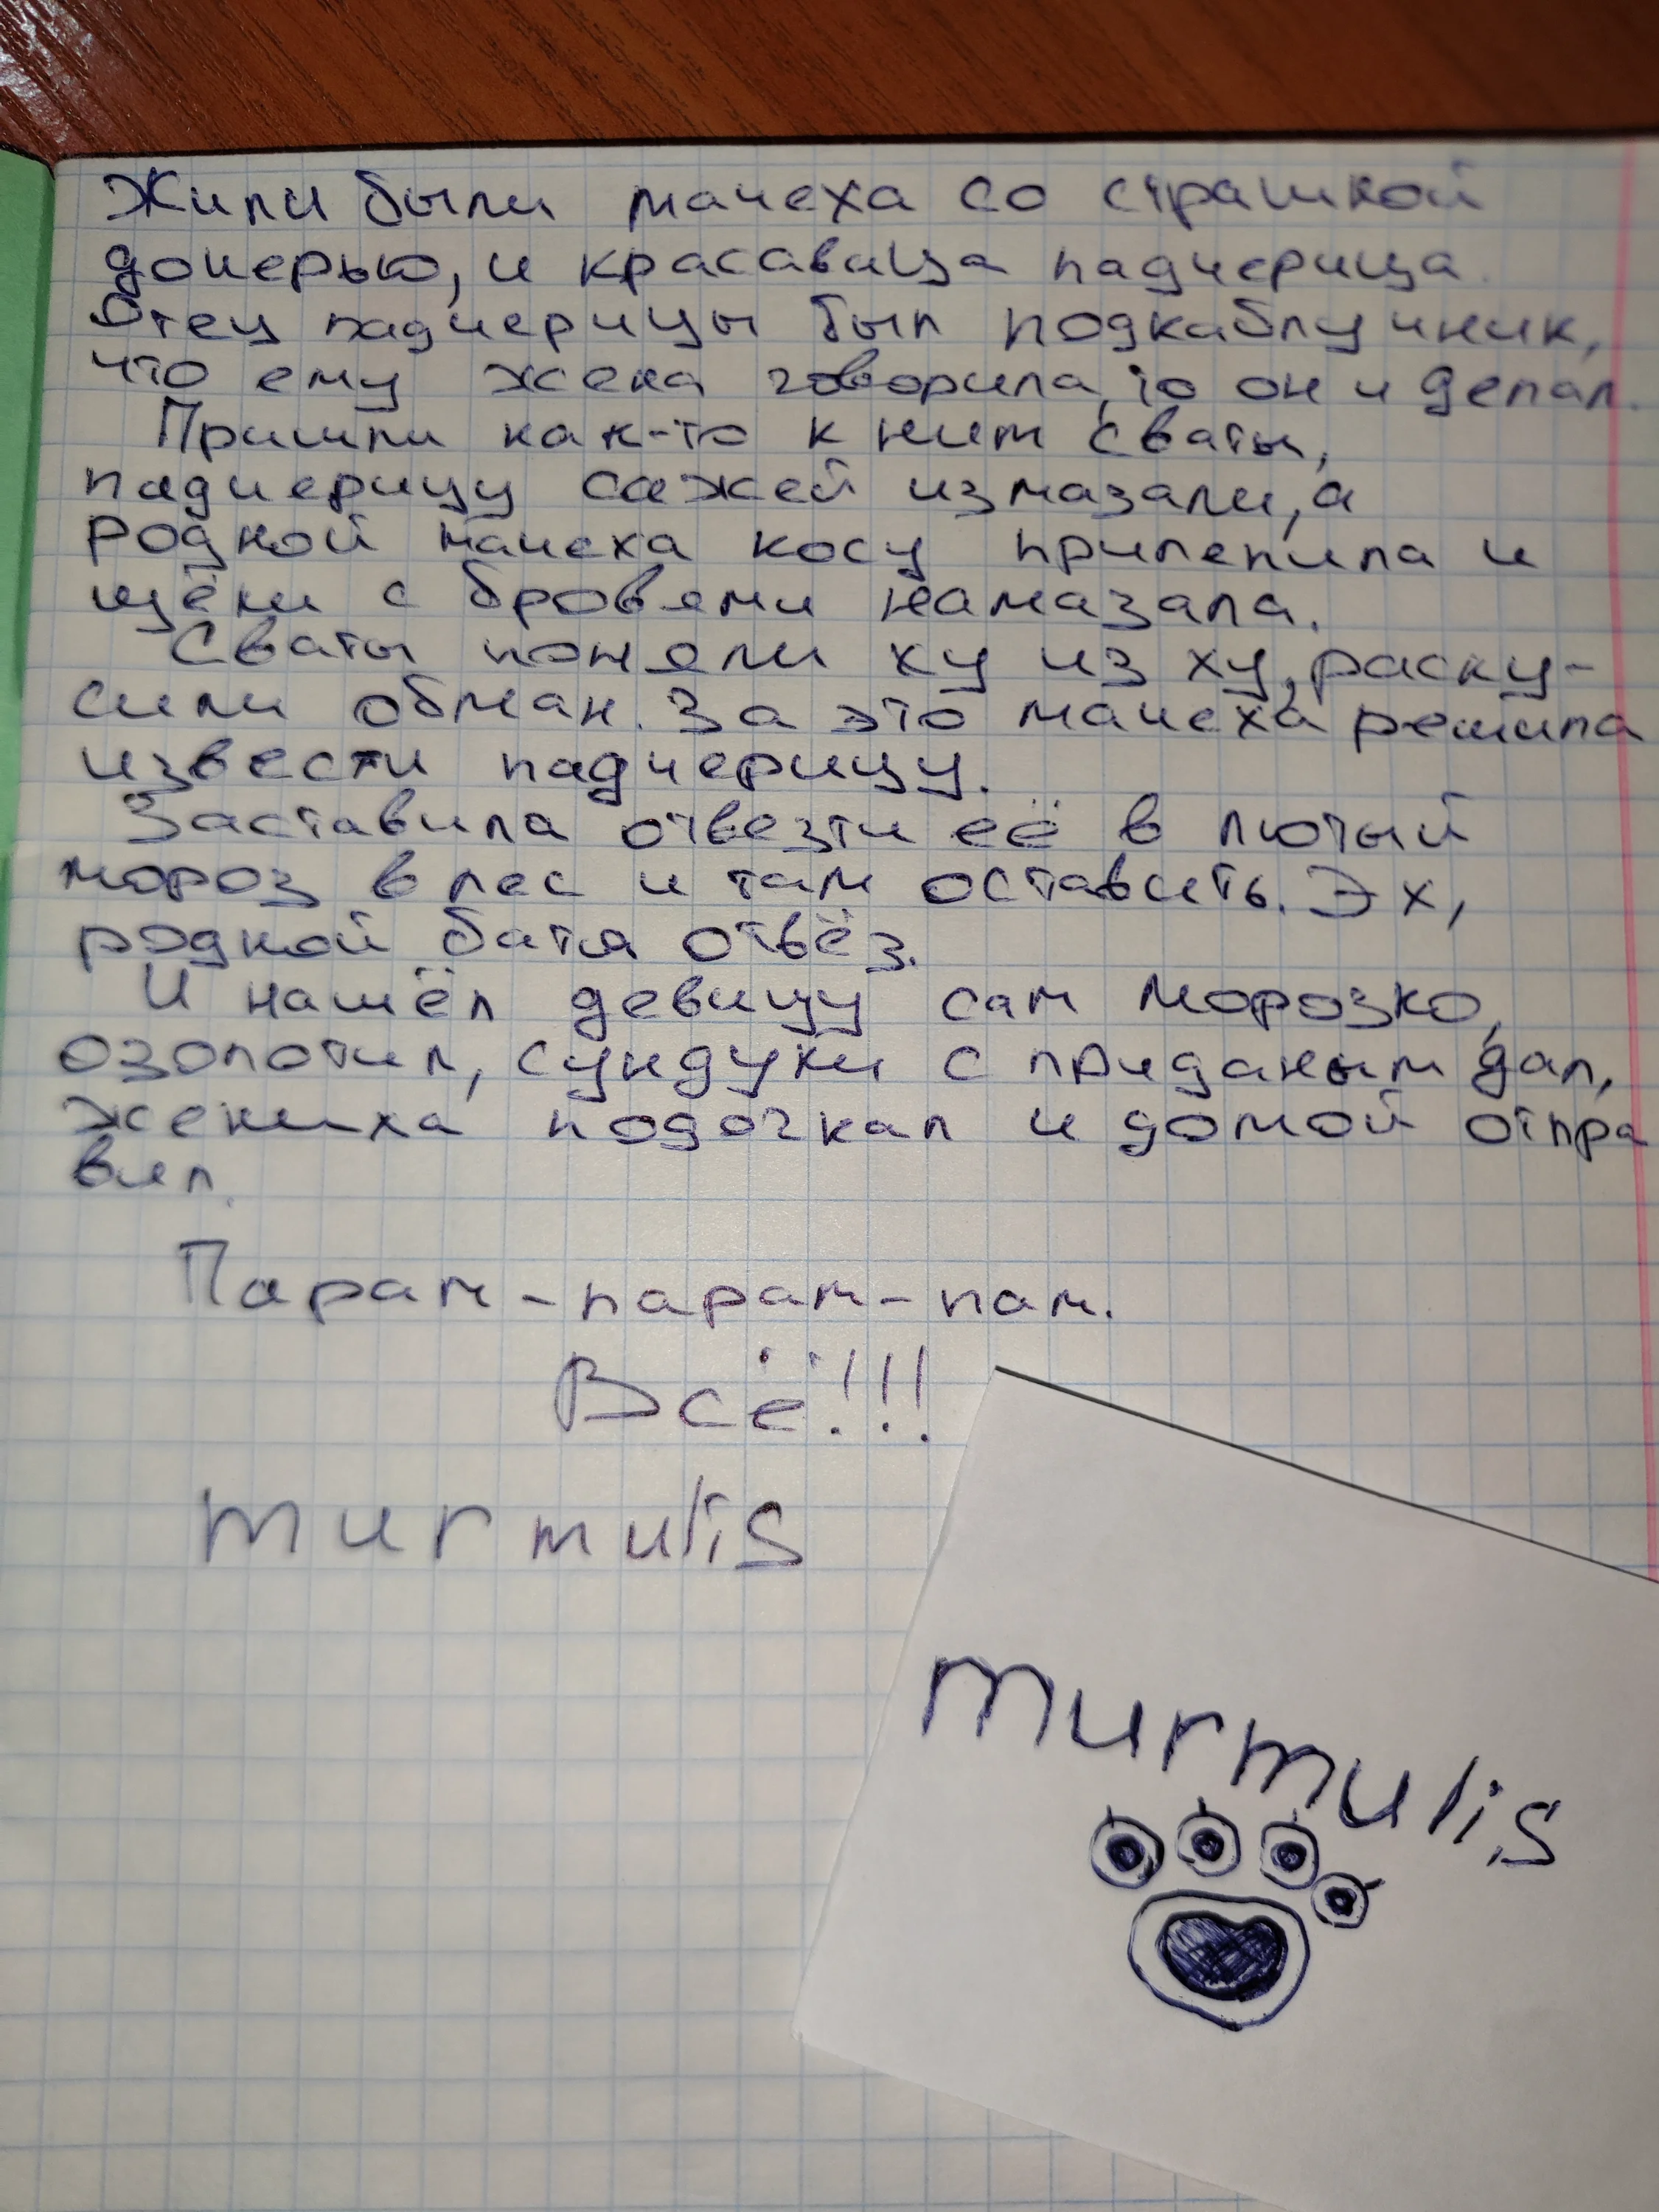 Жили были мачеха со страшной
дочерью, и красавица падчерица.
Отец падчерицы был подкаблучник,
что ему жена говорила, то он и делал.
Пришли как-то к ним сваты,
падчерицу сажей измазали, а
родной мачеха косу прилепила и
щёки с бровями намазала.
Сваты поняли ху из ху, раску-
сили обман. За это мачеха решила
извести падчерицу.
Заставила отвезти её в лютый
мороз в лес и там оставить. Эх,
родной батя отвёз.
И нашёл девицу сам Морозко,
озолотил, сундуки с приданым дал,
жениха подогнал и домой отпра
вил.
Парам-парам-пам.
Всё!!!
murmulis
murmulis